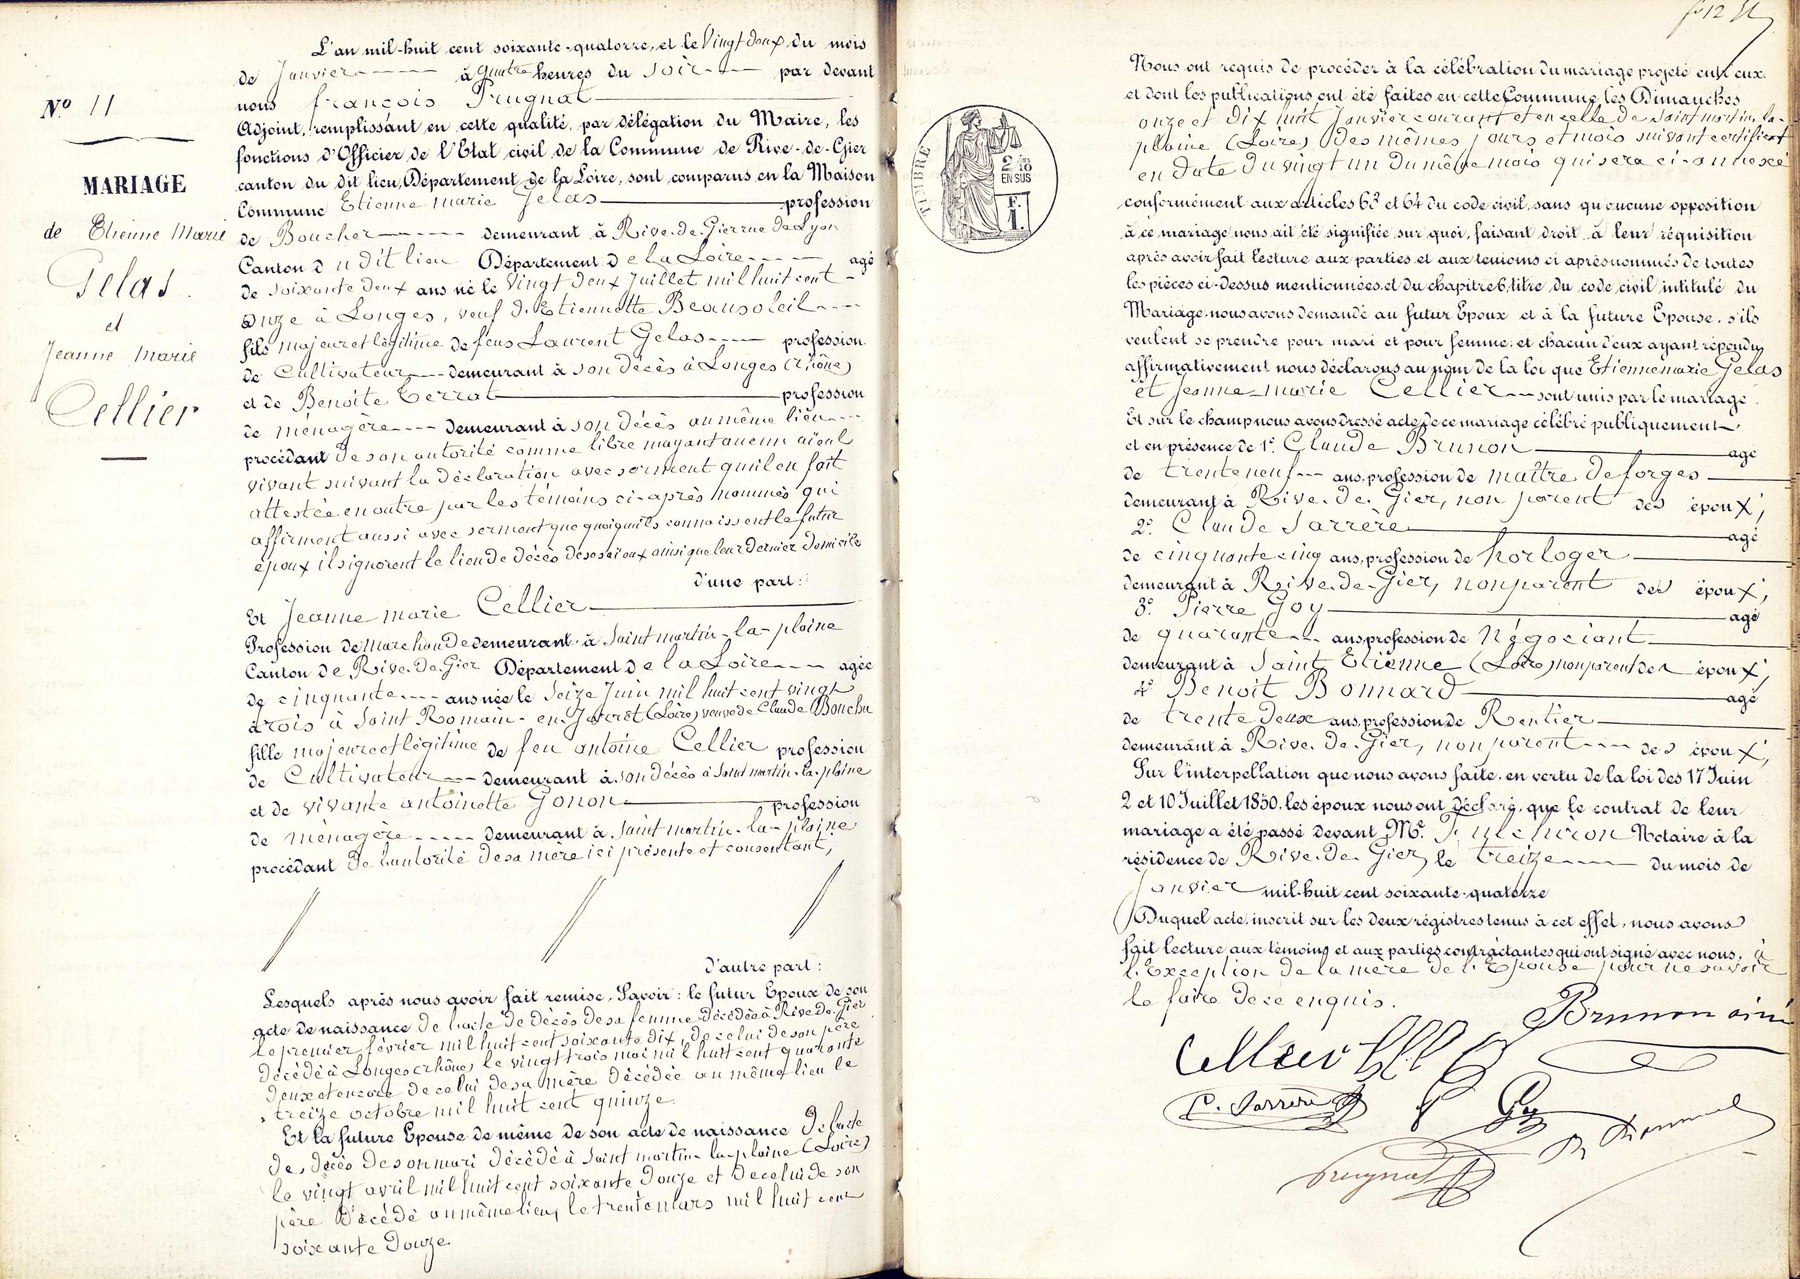 N° 11
MARIAGE
de Etienne Marie
Gelas
et
Jeanne Marie
Cellier
L'an mil-huit cent soixante-quatorze, et le Vingt deux du mois
de Janvier à quatre heures du soir par devant
nous françois Prugnat
Adjoint, remplissant en cette qualité, par délégation du Maire, les
fonctions d'Officier de l'Etat civil de la Commune de Rive-de-Gier
canton du dit lieu, Département de la Loire, sont comparus en la Maison
Commune Etienne marie Gelas profession
de Boucher demeurant à Rive-de-Gier rue de Lyon
Canton du dit lieu Département de la Loire, agé
de soixante deux ans né le vingt deux Juillet mil huit cent
onze à Longes, veuf d'Etiennette Beausoleil
fils majeur et légitime de feus Laurent Gelas profession
de Cultivateur demeurant à son décès à Longes (rhône)
et de Benoite Terrat profession
de ménagère demeurant à son décès au même lieu
procédant de son autorité comme libre n'ayant aucun aïeul
vivant suivant la déclaration avec serment qu'il en fait
attestée en outre par les témoins ci-après nommés qui
affirment aussi avec serment que quoiqu'ils connoissent le futur
époux ils ignorent le lieu de décès de ses aïeux ainsi que leur dernier domicile
d'une part:
Et Jeanne marie Cellier
Profession de marchande demeurant à Saint martin-la-plaine
Canton de Rive-de-Gier Département de la Loire agée
de cinquante ans née le seize Juin mil huit cent vingt
trois à Saint Romain-en-Jarret (Loire) veuve de Claude Bouchu
fille majeure et légitime de feu antoine Cellier profession
de Cultivateur demeurant à son décès à saint martin-la-plaine
et de vivante antoinette Gonon profession
de ménagère demeurant à saint martin-la-plaine
procédant de l'autorité de sa mère ici présente et consentant,
d'autre part:
Lesquels après nous avoir fait remise, Savoir: le futur Epoux de son
acte de naissance de l'acte de décès de sa femme décédée à Rive de Gier
le premier février mil huit cent soixante dix, de celui de son père
décédé à Longes (rhône) le vingt trois mai mil huit cent quarante
deux et encore de celui de sa mère décédée au même lieu le
treize octobre mil huit cent quinze.
Et la future Epouse de même de son acte de naissance de l'acte
de décès de son mari décédé à saint martin-la-plaine (Loire)
le vingt avril mil huit cent soixante douze et de celui de son
père décédé au même lieu, le trente mars mil huit cent
soixante douze
f° 12
TIMBRE
2 10
EN SUS
F.
1.
Nous ont requis de procéder à la célébration du mariage projeté entr'eux.
et dont les publications ont été faites en cette Commune les Dimanches
onze et dix huit Janvier courant et en celle de saint martin-la-
plaine (Loire) des mêmes jours et mois suivant certificat
en date du vingt un du même mois qui sera ci-annexé
conformément aux articles 63 et 64 du code civil, sans qu'aucune opposition
à ce mariage nous ait été signifiée, sur quoi, faisant droit à leur réquisition
après avoir fait lecture aux parties et aux temoins ci après nommés de toutes
les pièces ci-dessus mentionnées, et du chapitre 6, titre du code civil intitulé du
Mariage, nous avons demandé au futur Epoux et à la future Epouse, s'ils
veulent se prendre pour mari et pour femme, et chacun d'eux ayant répondu
affirmativement nous déclarons au nom de la loi que Etienne marie Gelas
et Jeanne-marie Cellier sont unis par le mariage.
Et sur le champ nous avons dressé acte de ce mariage célébré publiquement
et en présence de 1° Claude Brunon agé
de trente neuf ans, profession de maître de forges
demeurant à Rive-de-Gier, non parent des époux;
2° Claude Sarrère agé
de cinquante cinq ans, profession de horloger
demeurant à Rive-de-Gier, non parent des époux;
3° Pierre Goy agé
de quarante ans, profession de Négociant
demeurant à Saint Etienne (Loire) non parent des époux;
4° Benoit Bonnard agé
de trente deux ans, profession de Rentier
demeurant à Rive-de-Gier, non parent des époux;
Sur l'interpellation que nous avons faite, en vertu de la loi des 17 Juin
2 et 10 Juillet 1850, les époux nous ont déclaré, que le contrat de leur
mariage a été passé devant Me Notaire à la
résidence de Rive-de-Gier, le treize du mois de
Janvier mil-huit cent soixante-quatorze
Duquel acte, inscrit sur les deux régistres tenus à cet effet, nous avons
fait lecture aux témoins et aux parties contractantes qui ont signé avec nous, à
l'exception de la mère de l'Epouse pour ne savoir
le faire de ce enquis.
Brunon ainé
Cellier
C. Sarrère
Goy
B Bonnard
Prugnat